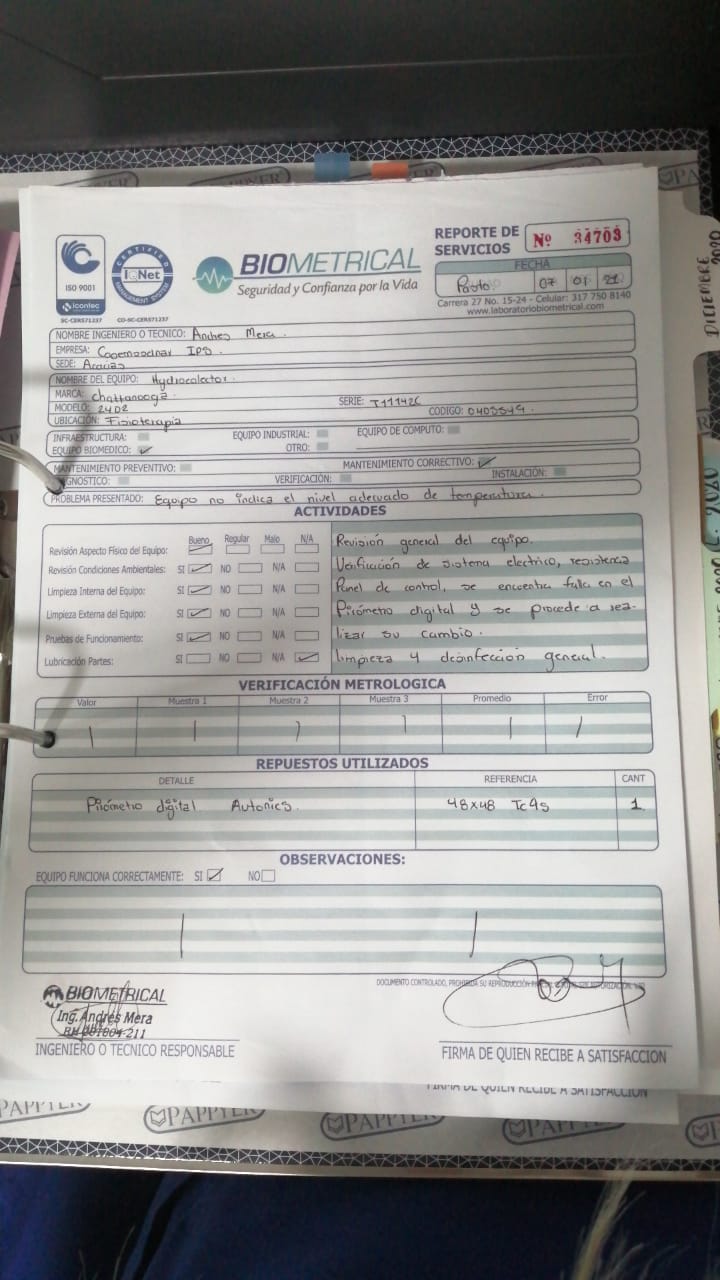 ISO 9001
icontec
SC-CER571237
CERTIFIED
IQNet
MANAGEMENT SYSTEM
CO-SC-CER571237
BIOMETRICAL
Seguridad y Confianza por la Vida
REPORTE DE SERVICIOS Nº 34703
FECHA
Pasto 07 01 21
Carrera 27 No. 15-24 - Celular: 317 750 8140
www.laboratoriobiometrical.com
NOMBRE INGENIERO O TECNICO: Andres Mera.
EMPRESA: Coemssanar IPS.
SEDE: Aracias
NOMBRE DEL EQUIPO: Hydrocolector.
MARCA: Chattanooga.
MODELO: 24D2 SERIE: T11142C
UBICACIÓN: Fisioterapia CODIGO: 0403549
INFRAESTRUCTURA: EQUIPO INDUSTRIAL: EQUIPO DE COMPUTO:
EQUIPO BIOMEDICO: ✓ OTRO:
MANTENIMIENTO PREVENTIVO: MANTENIMIENTO CORRECTIVO: ✓
GNOSTICO: VERIFICACIÓN: INSTALACIÓN:
PROBLEMA PRESENTADO: Equipo no indica el nivel adecuado de temperatura.
ACTIVIDADES
Bueno Regular Malo N/A
Revisión Aspecto Físico del Equipo:
Revisión Condiciones Ambientales: SI NO N/A
Limpieza Interna del Equipo: SI NO N/A
Limpieza Externa del Equipo: SI NO N/A
Pruebas de Funcionamiento: SI NO N/A
Lubricación Partes: SI NO N/A
Revisión general del equipo.
Verificación de sistema electrico, resistencia
Panel de control, se encuentra falla en el
Pirómetro digital y se procede a rea-
lizar su cambio.
limpieza y desinfección general.
VERIFICACIÓN METROLOGICA
Valor Muestra 1 Muestra 2 Muestra 3 Promedio Error
REPUESTOS UTILIZADOS
DETALLE REFERENCIA CANT
Pirómetro digital Autonics. 48x48 Tc4s 1
OBSERVACIONES:
EQUIPO FUNCIONA CORRECTAMENTE: SI NO
DOCUMENTO CONTROLADO, PROHIBIDA SU REPRODUCCIÓN
BIOMETRICAL
Ing. Andrés Mera
INGENIERO O TECNICO RESPONSABLE
FIRMA DE QUIEN RECIBE A SATISFACCION
FIRMA DE QUIEN RECIBE A SATISFACCION
PAPPYER
DICIEMBRE 2020
2020